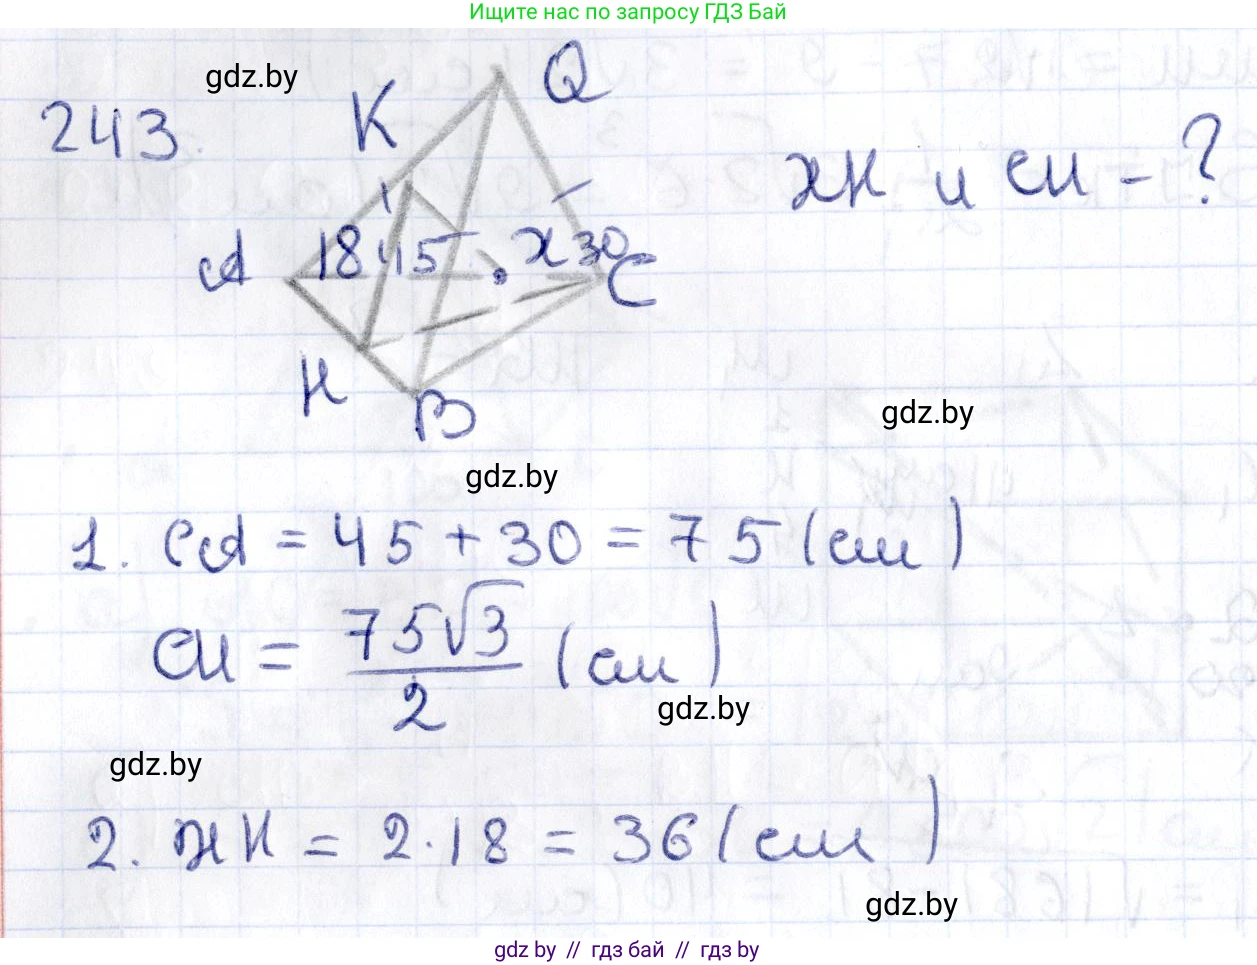 Ищите нас по запросу ГДЗ Бай
gdz.by
243.
K
Q
жк и си - ?
A
18
45
ж
30
C
H
B
gdz.by
gdz.by
1. CA = 45 + 30 = 75 (см)
СИ = 75√3 / 2 (см)
gdz.by
gdz.by
2. жк = 2·18 = 36 (см)
gdz.by
gdz by // гдз бай // гдз by